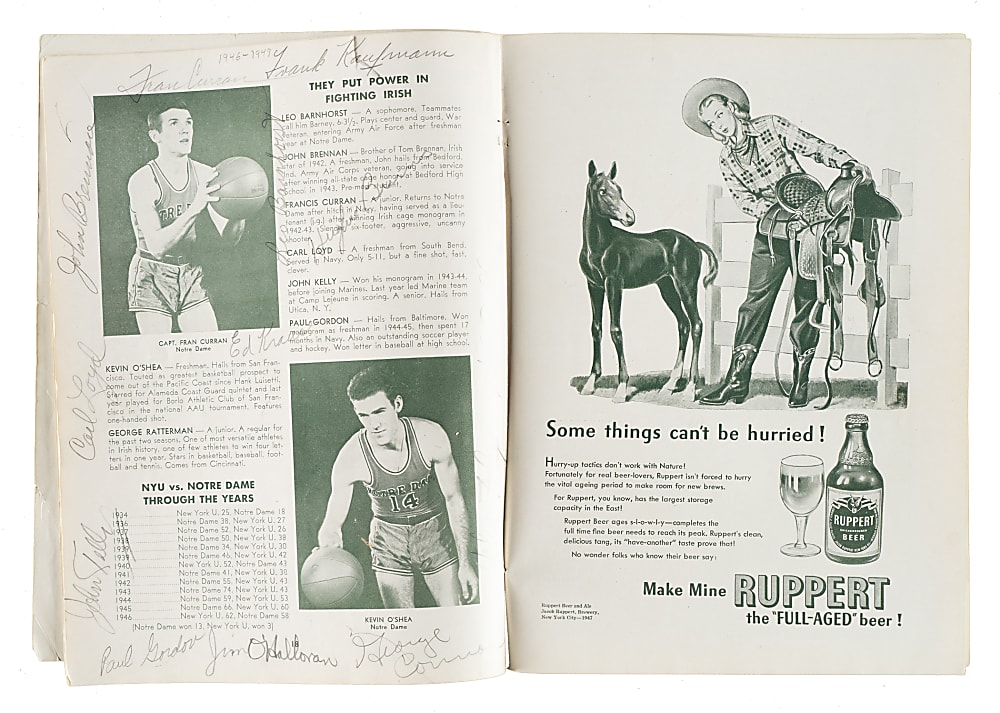 1946-1947
Fran Curran Frank Kaufmann
THEY PUT POWER IN
FIGHTING IRISH
LEO BARNHORST — A sophomore. Teammates
call him Barney. 6-3½. Plays center and guard. War
veteran, entering Army Air Force after freshman
year at Notre Dame.
JOHN BRENNAN — Brother of Tom Brennan, Irish
star of 1942. A freshman, John hails from Bedford,
Ind. Army Air Corps veteran, going into service
after winning all-state cage honors at Bedford High
School in 1943. Pre-med student.
FRANCIS CURRAN — A junior. Returns to Notre
Dame after hitch in Navy, having served as a lieu-
tenant (j.g.) after winning Irish cage monogram in
1942-43. Slender six-footer, aggressive, uncanny
shooter.
CARL LOYD — A freshman from South Bend.
Served in Navy. Only 5-11, but a fine shot, fast,
clever.
JOHN KELLY — Won his monogram in 1943-44,
before joining Marines. Last year led Marine team
at Camp Lejeune in scoring. A senior. Hails from
Utica, N. Y.
PAUL GORDON — Hails from Baltimore. Won
monogram as freshman in 1944-45, then spent 17
months in Navy. Also an outstanding soccer player
and hockey. Won letter in baseball at high school.
John Brennan
CAPT. FRAN CURRAN
Notre Dame
Ed
KEVIN O'SHEA — Freshman. Hails from San Fran-
cisco. Touted as greatest basketball prospect to
come out of the Pacific Coast since Hank Luisetti.
Starred for Alameda Coast Guard quintet and last
year played for Borlo Athletic Club of San Fran-
cisco in the national AAU tournament. Features
one-handed shot.
GEORGE RATTERMAN — A junior. A regular for
the past two seasons. One of most versatile athletes
in Irish history, one of few athletes to win four let-
ters in one year. Stars in basketball, baseball, foot-
ball and tennis. Comes from Cincinnati.
Carl Loyd
NYU vs. NOTRE DAME
THROUGH THE YEARS
1934 New York U. 25, Notre Dame 18
1936 Notre Dame 38, New York U. 27
1937 Notre Dame 52, New York U. 26
1938 Notre Dame 50, New York U. 38
1939 Notre Dame 34, New York U. 30
1939 Notre Dame 46, New York U. 42
1940 New York U. 52, Notre Dame 43
1941 Notre Dame 41, New York U. 38
1942 Notre Dame 55, New York U. 43
1943 Notre Dame 74, New York U. 43
1944 Notre Dame 59, New York U. 53
1945 Notre Dame 66, New York U. 60
1946 New York U. 62, Notre Dame 58
(Notre Dame won 13, New York U. won 3)
John Kelly
14
KEVIN O'SHEA
Notre Dame
Paul Gordon Jim O'Halloran George
18
Some things can't be hurried!
Hurry-up tactics don't work with Nature!
Fortunately for real beer-lovers, Ruppert isn't forced to hurry
the vital ageing period to make room for new brews.
For Ruppert, you know, has the largest storage
capacity in the East!
Ruppert Beer ages s-l-o-w-l-y—completes the
full time fine beer needs to reach its peak. Ruppert's clean,
delicious tang, its "have-another" taste prove that!
No wonder folks who know their beer say:
RUPPERT
BEER
Make Mine RUPPERT
the "FULL-AGED" beer!
Ruppert Beer and Ale
Jacob Ruppert, Brewery,
New York City—1947